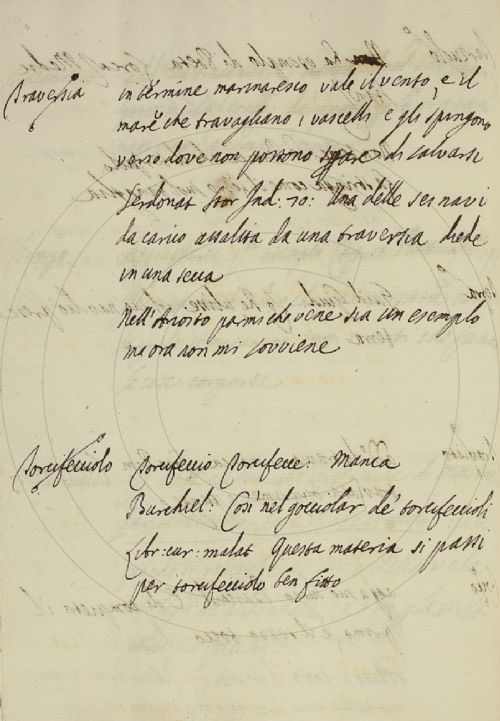 Traversia in termine marinaresco vale il vento, e il
mare che travagliano i vascelli e gli spingono
verso dove non possono di salvarsi
Serdonat Stor Ind: 70: Una delle sei navi
da carico assalita da una traversia diede
in una secca
Nell'Ariosto parmi che vene sia un esempio
ma ora non mi sovviene
Torcifecciolo Torcifeccio Torcifecce: Manca
Burchiel: Così nel gocciolar de' torcifeccioli
Libr: cur: malat Questa materia si passi
per torcifecciolo ben fitto